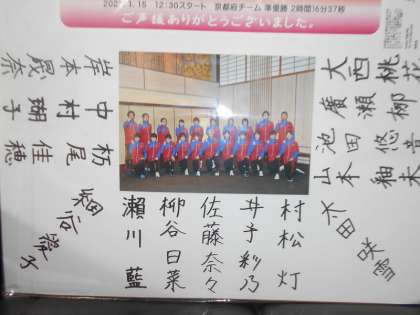 1.15 12:30スタート 京都府チーム 準優勝 2時間16分37秒
ご声援ありがとうございました。
大西 桃花
廣瀬 梛
池田 悠音
山本 釉未
太田 咲雪
村松 灯
井手 彩乃
佐藤 奈々
柳谷 日菜
瀨川 藍
細谷
枥尾 佳穂
中村
岸本 晟奈